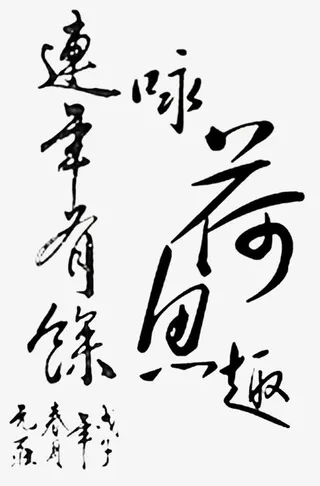 咏荷思趣
連年有餘
戊子
年
春月